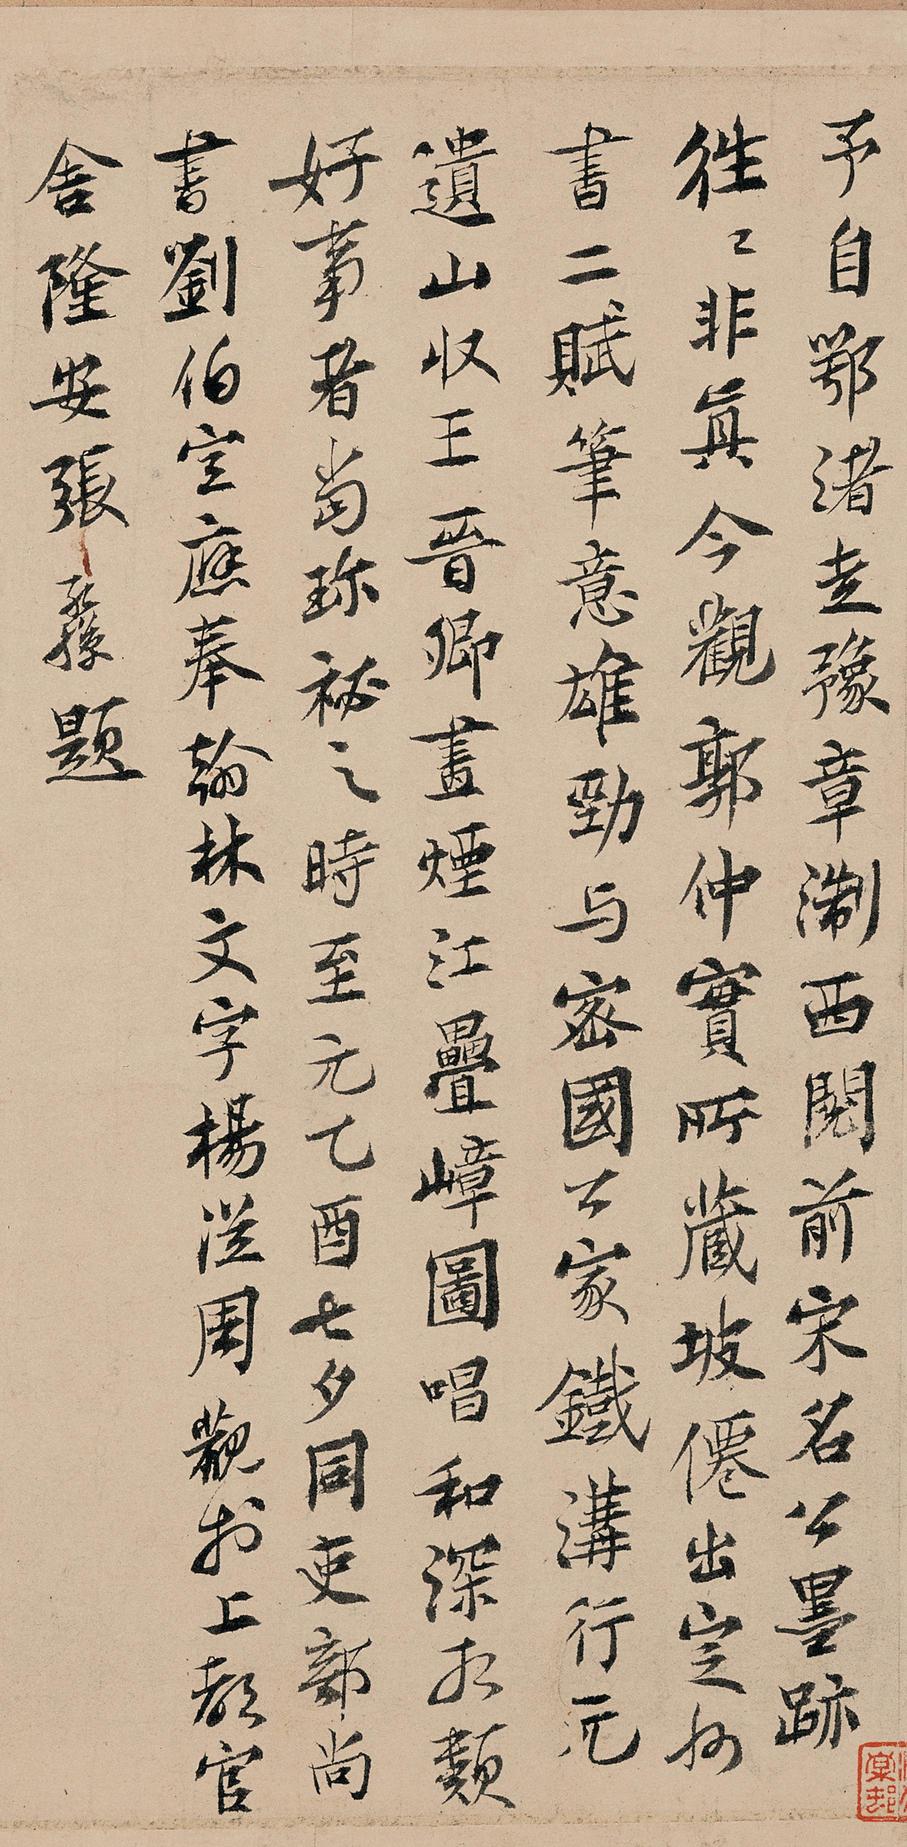 予自鄂渚走豫章淛西閱前宋名公墨跡
徃〻非真今觀郭仲實所藏坡僊出定州
書二賦筆意雄勁与密國公家鐵溝行元
遺山收王晉卿畫煙江疊嶂圖唱和深相類
好事者當珎祕之時至元乙酉七夕同吏部尚
書劉伯宣應奉翰林文字楊從周觀于上都官
舍隆安張孔孫題